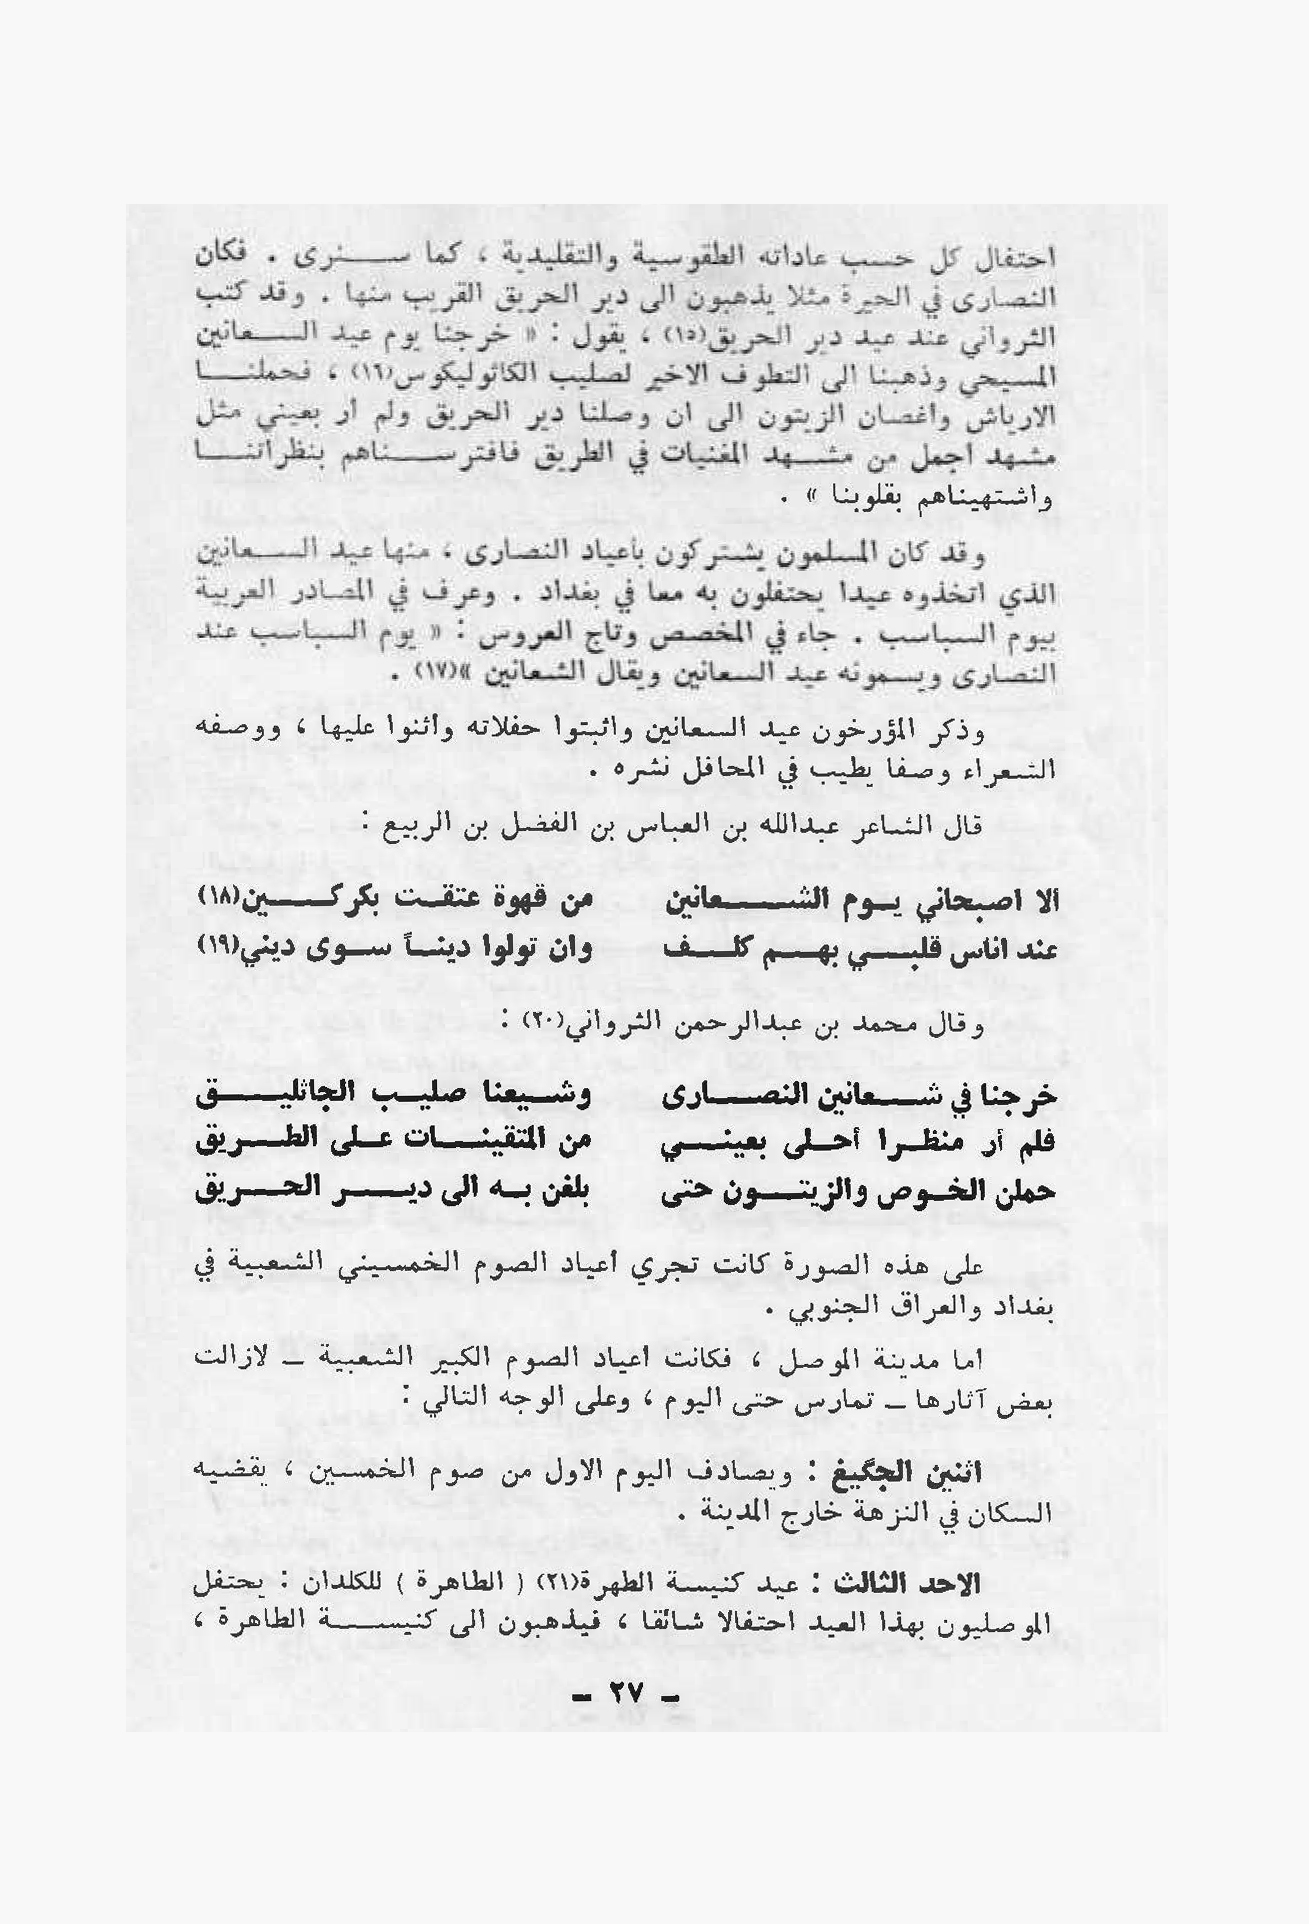 احتفال كل حسب عاداته الطقوسية والتقليدية ، كما سنرى . فكان
النصارى في الحيرة مثلا يذهبون الى دير الحريق القريب منها . وقد كتب
الثرواني عند عيد دير الحريق(١٥) ، يقول : « خرجنا يوم عيد السعانين
المسيحي وذهبنا الى التطوف الاخير لصليب الكاثوليكوس(١٦) ، فحملنا
الارياش وأغصان الزيتون الى ان وصلنا دير الحريق ولم أر بعيني مثل
مشهد أجمل من مشهد المغنيات في الطريق فافترسناهم بنظراتنا
واشتهيناهم بقلوبنا » .
وقد كان المسلمون يشتركون بأعياد النصارى ، منها عيد السعانين
الذي اتخذوه عيدا يحتفلون به معا في بغداد . وعرف في المصادر العربية
بيوم السباسب . جاء في المخصص وتاج العروس : « يوم السباسب عند
النصارى ويسمونه عيد السعانين ويقال الشعانين »(١٧) .
وذكر المؤرخون عيد السعانين واثبتوا حفلاته وأثنوا عليها ، ووصفه
الشعراء وصفا يطيب في المحافل نشره .
قال الشاعر عبدالله بن العباس بن الفضل بن الربيع :
ألا اصبحاني يوم الشعانين من قهوة عتقت بكركين(١٨)
عند اناس قلبي بهم كلف وان تولوا ديناً سوى ديني(١٩)
وقال محمد بن عبدالرحمن الثرواني(٢٠) :
خرجنا في شعانين النصارى وشيعنا صليب الجاثليق
فلم أر منظرا أحلى بعيني من المتقينات على الطريق
حملن الخوص والزيتون حتى بلغن به الى دير الحريق
على هذه الصورة كانت تجري أعياد الصوم الخمسيني الشعبية في
بغداد والعراق الجنوبي .
أما مدينة الموصل ، فكانت أعياد الصوم الكبير الشعبية ــ لازالت
بعض آثارها ــ تمارس حتى اليوم ، وعلى الوجه التالي :
اثنين الجگيغ : ويصادف اليوم الاول من صوم الخمسين ، يقضيه
السكان في النزهة خارج المدينة .
الاحد الثالث : عيد كنيسة الطهرة(٢١) ( الطاهرة ) للكلدان : يحتفل
الموصليون بهذا العيد احتفالا شائقا ، فيذهبون الى كنيسة الطاهرة ،
ـ ٢٧ ـ